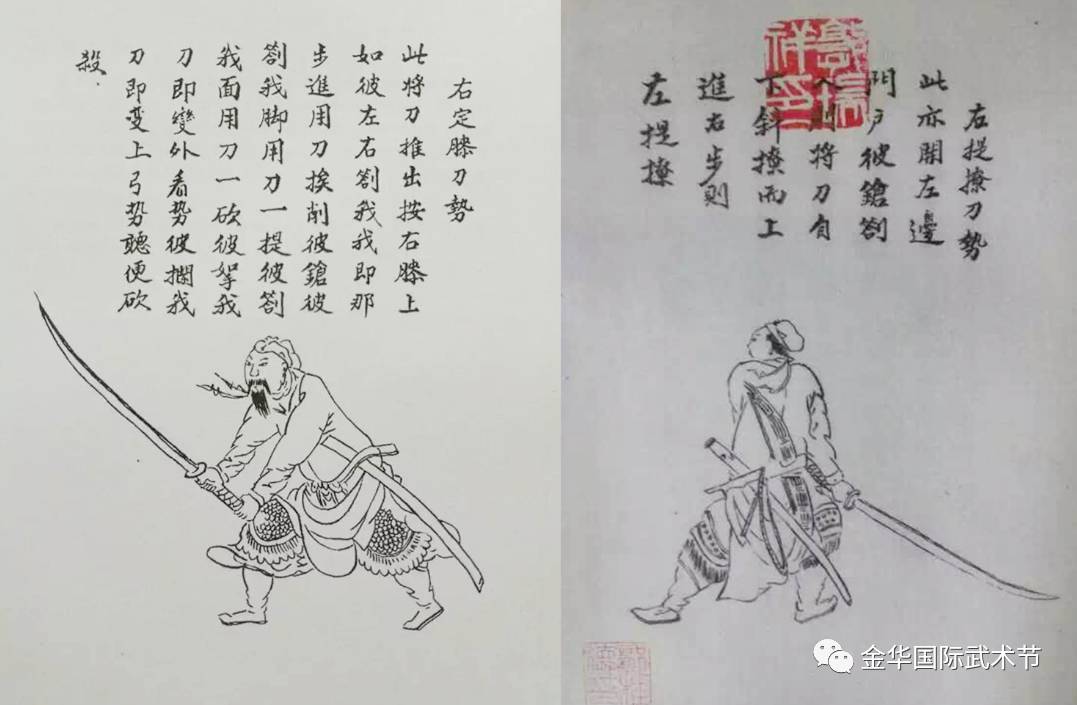 右定膝刀勢
此将刀推出按右膝上
如彼左右劄我我即那
步進用刀挨削彼鎗彼
劄我脚用刀一提彼劄
我面用刀一砍彼拏我
刀即變外看势彼攔我
刀即变上弓势聽便砍
殺
右提撩刀勢
此亦開左邊
門户彼鎗劄
入則将刀自
下斜撩而上
進右步則
左提撩
金华国际武术节